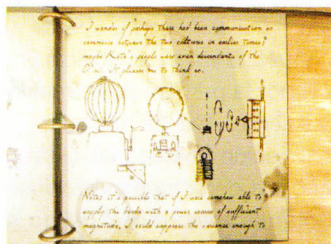 I wonder if perhaps there had been communication or
commerce between the two cultures in earlier times?
maybe people were even descendants of the
It pleases me to think so.
Notes: it's possible that if I were somehow able to
supply the books with a power source of sufficient
magnitude, I could suppress the enough to